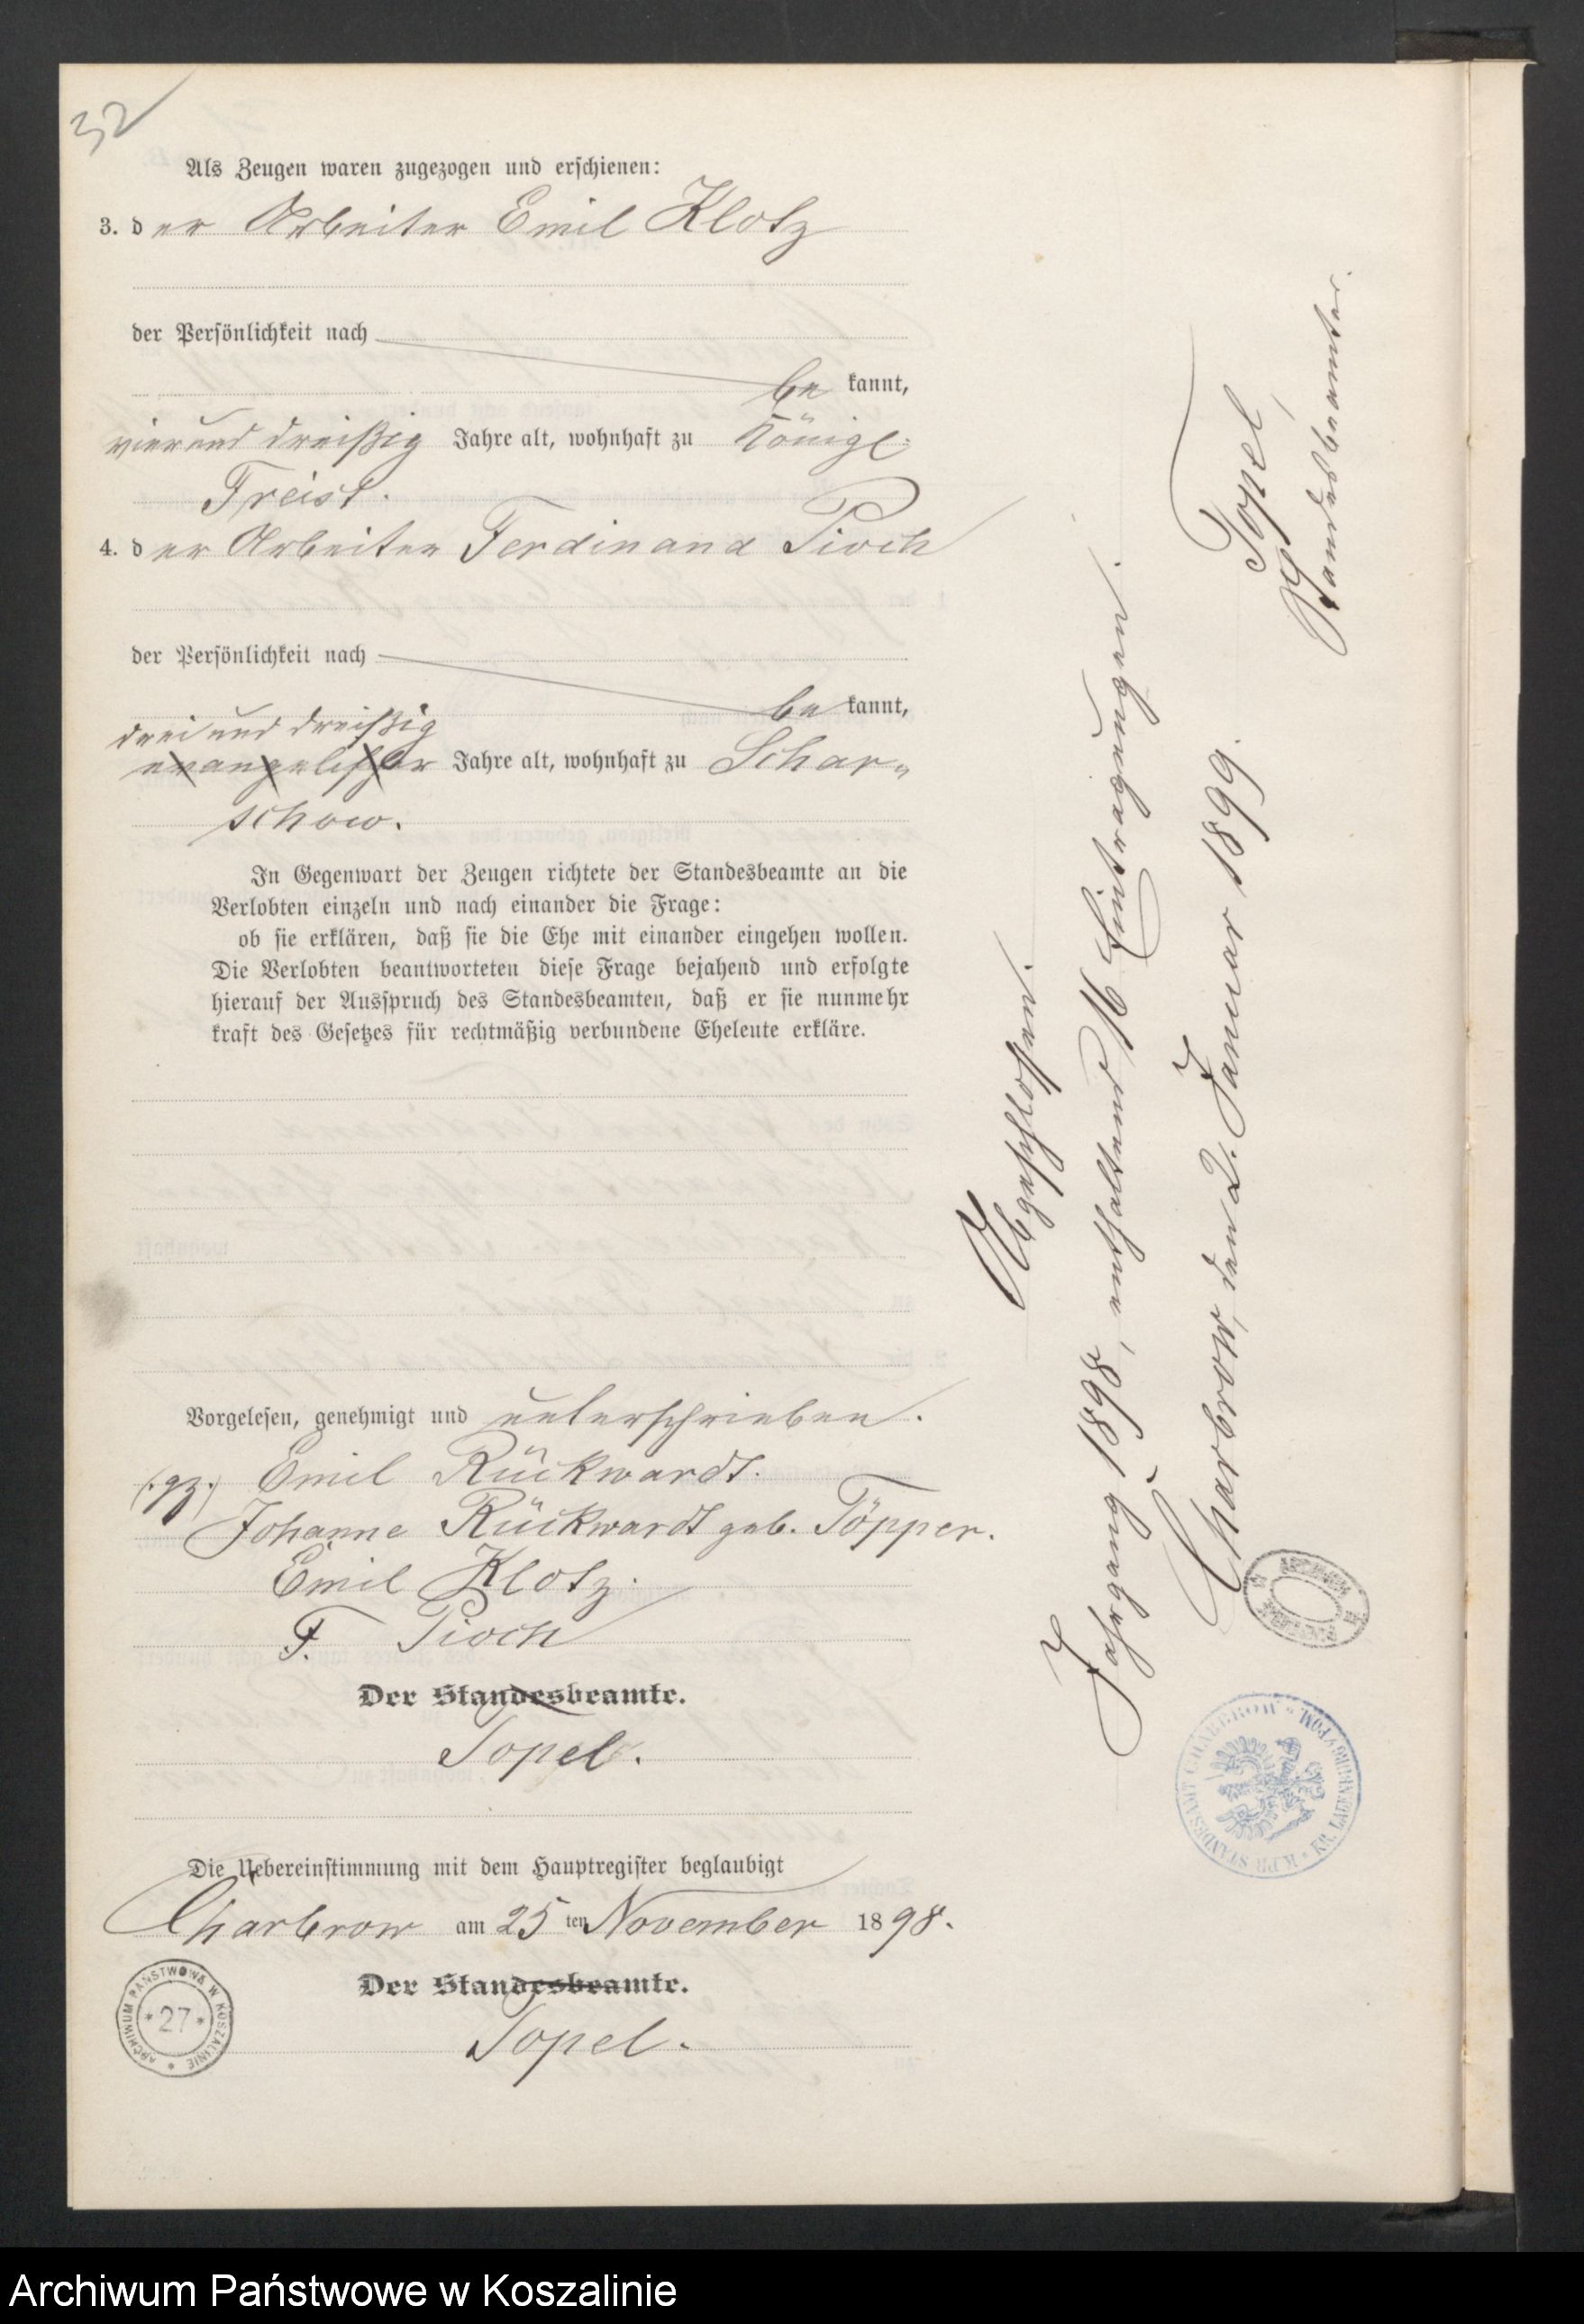 32
Als Zeugen waren zugezogen und erschienen:
3. der Arbeiter Emil Klotz
der Persönlichkeit nach
be kannt,
vierund dreißig Jahre alt, wohnhaft zu Königl.
Freist.
4. der Arbeiter Ferdinand Pioch
der Persönlichkeit nach
be kannt,
drei und dreißig
evangelischer Jahre alt, wohnhaft zu Schar-
schow.
In Gegenwart der Zeugen richtete der Standesbeamte an die
Verlobten einzeln und nach einander die Frage:
ob sie erklären, daß sie die Ehe mit einander eingehen wollen.
Die Verlobten beantworteten diese Frage bejahend und erfolgte
hierauf der Ausspruch des Standesbeamten, daß er sie nunmehr
kraft des Gesetzes für rechtmäßig verbundene Eheleute erkläre.
Vorgelesen, genehmigt und unterschrieben.
(gz.) Emil Rückwardt.
Johanne Rückwardt geb. Töpper.
Emil Klotz.
F. Pioch
Der Standesbeamte.
Topel.
Die Uebereinstimmung mit dem Hauptregister beglaubigt
Charbrow am 25 ten November 1898.
Der Standesbeamte.
Topel.
ARCHIWUM PAŃSTWOWE W KOSZALINIE
* 27 *
Abgeschlossen.
Jahrgang 1898, enthaltend 16 Eintragungen.
Charbrow, den 2. Januar 1899.
Topel,
Standesbeamter.
K. PR. STANDESAMT CHARBROW * KR. LAUENBURG I/POM. *
Archiwum Państwowe w Koszalinie